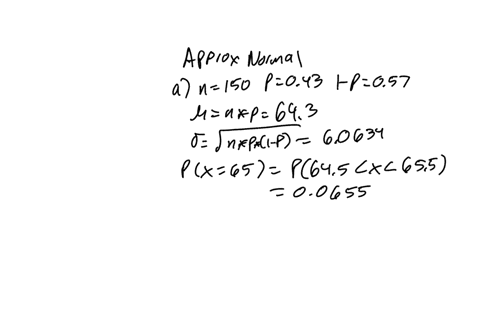 Approx Normal
a) n=150 P=0.43 1-P=0.57
μ=n*p=64.3
σ=√n*p*(1-P)=6.0634
P(x=65)=P(64.5<x<65.5)
=0.0655